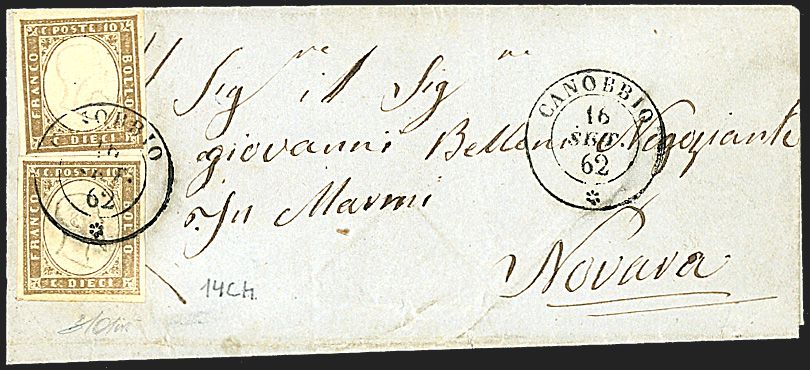 C. POSTE 10
FRANCO
BOLLO
C. DIECI 10
C. POSTE 10
FRANCO
BOLLO
C. DIECI
NOBBIO
16
SET.
62
CANOBBIO
16
SET
62
Sig.re il Sig.re
giovanni Negoziante
In Marmi
Novara
14CH